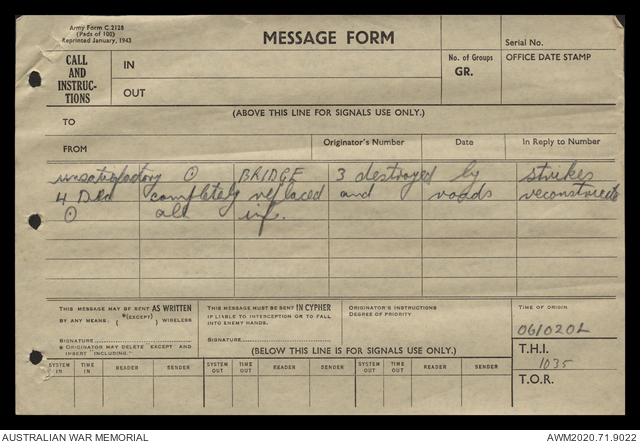 Army Form C.2128
(Pads of 100)
Reprinted January, 1943
MESSAGE FORM
Serial No.
CALL
AND
INSTRUC-
TIONS
IN
OUT
No. of Groups
GR.
OFFICE DATE STAMP
(ABOVE THIS LINE FOR SIGNALS USE ONLY.)
TO
FROM
Originator's Number
Date
In Reply to Number
unsatisfactory ⊙ BRIDGE 3 destroyed by strikes
4 Dec completely replaced and roads reconstructed
⊙ all inf.
THIS MESSAGE MAY BE SENT AS WRITTEN
BY ANY MEANS. *(EXCEPT) ( ) WIRELESS
SIGNATURE
* ORIGINATOR MAY DELETE EXCEPT AND
INSERT "INCLUDING."
THIS MESSAGE MUST BE SENT IN CYPHER
IF LIABLE TO INTERCEPTION OR TO FALL
INTO ENEMY HANDS.
SIGNATURE
ORIGINATOR'S INSTRUCTIONS
DEGREE OF PRIORITY
TIME OF ORIGIN
061020L
T.H.I.
1035
T.O.R.
(BELOW THIS LINE IS FOR SIGNALS USE ONLY.)
SYSTEM IN TIME IN READER SENDER SYSTEM OUT TIME OUT READER SENDER SYSTEM OUT TIME OUT READER SENDER
AUSTRALIAN WAR MEMORIAL
AWM2020.71.9022